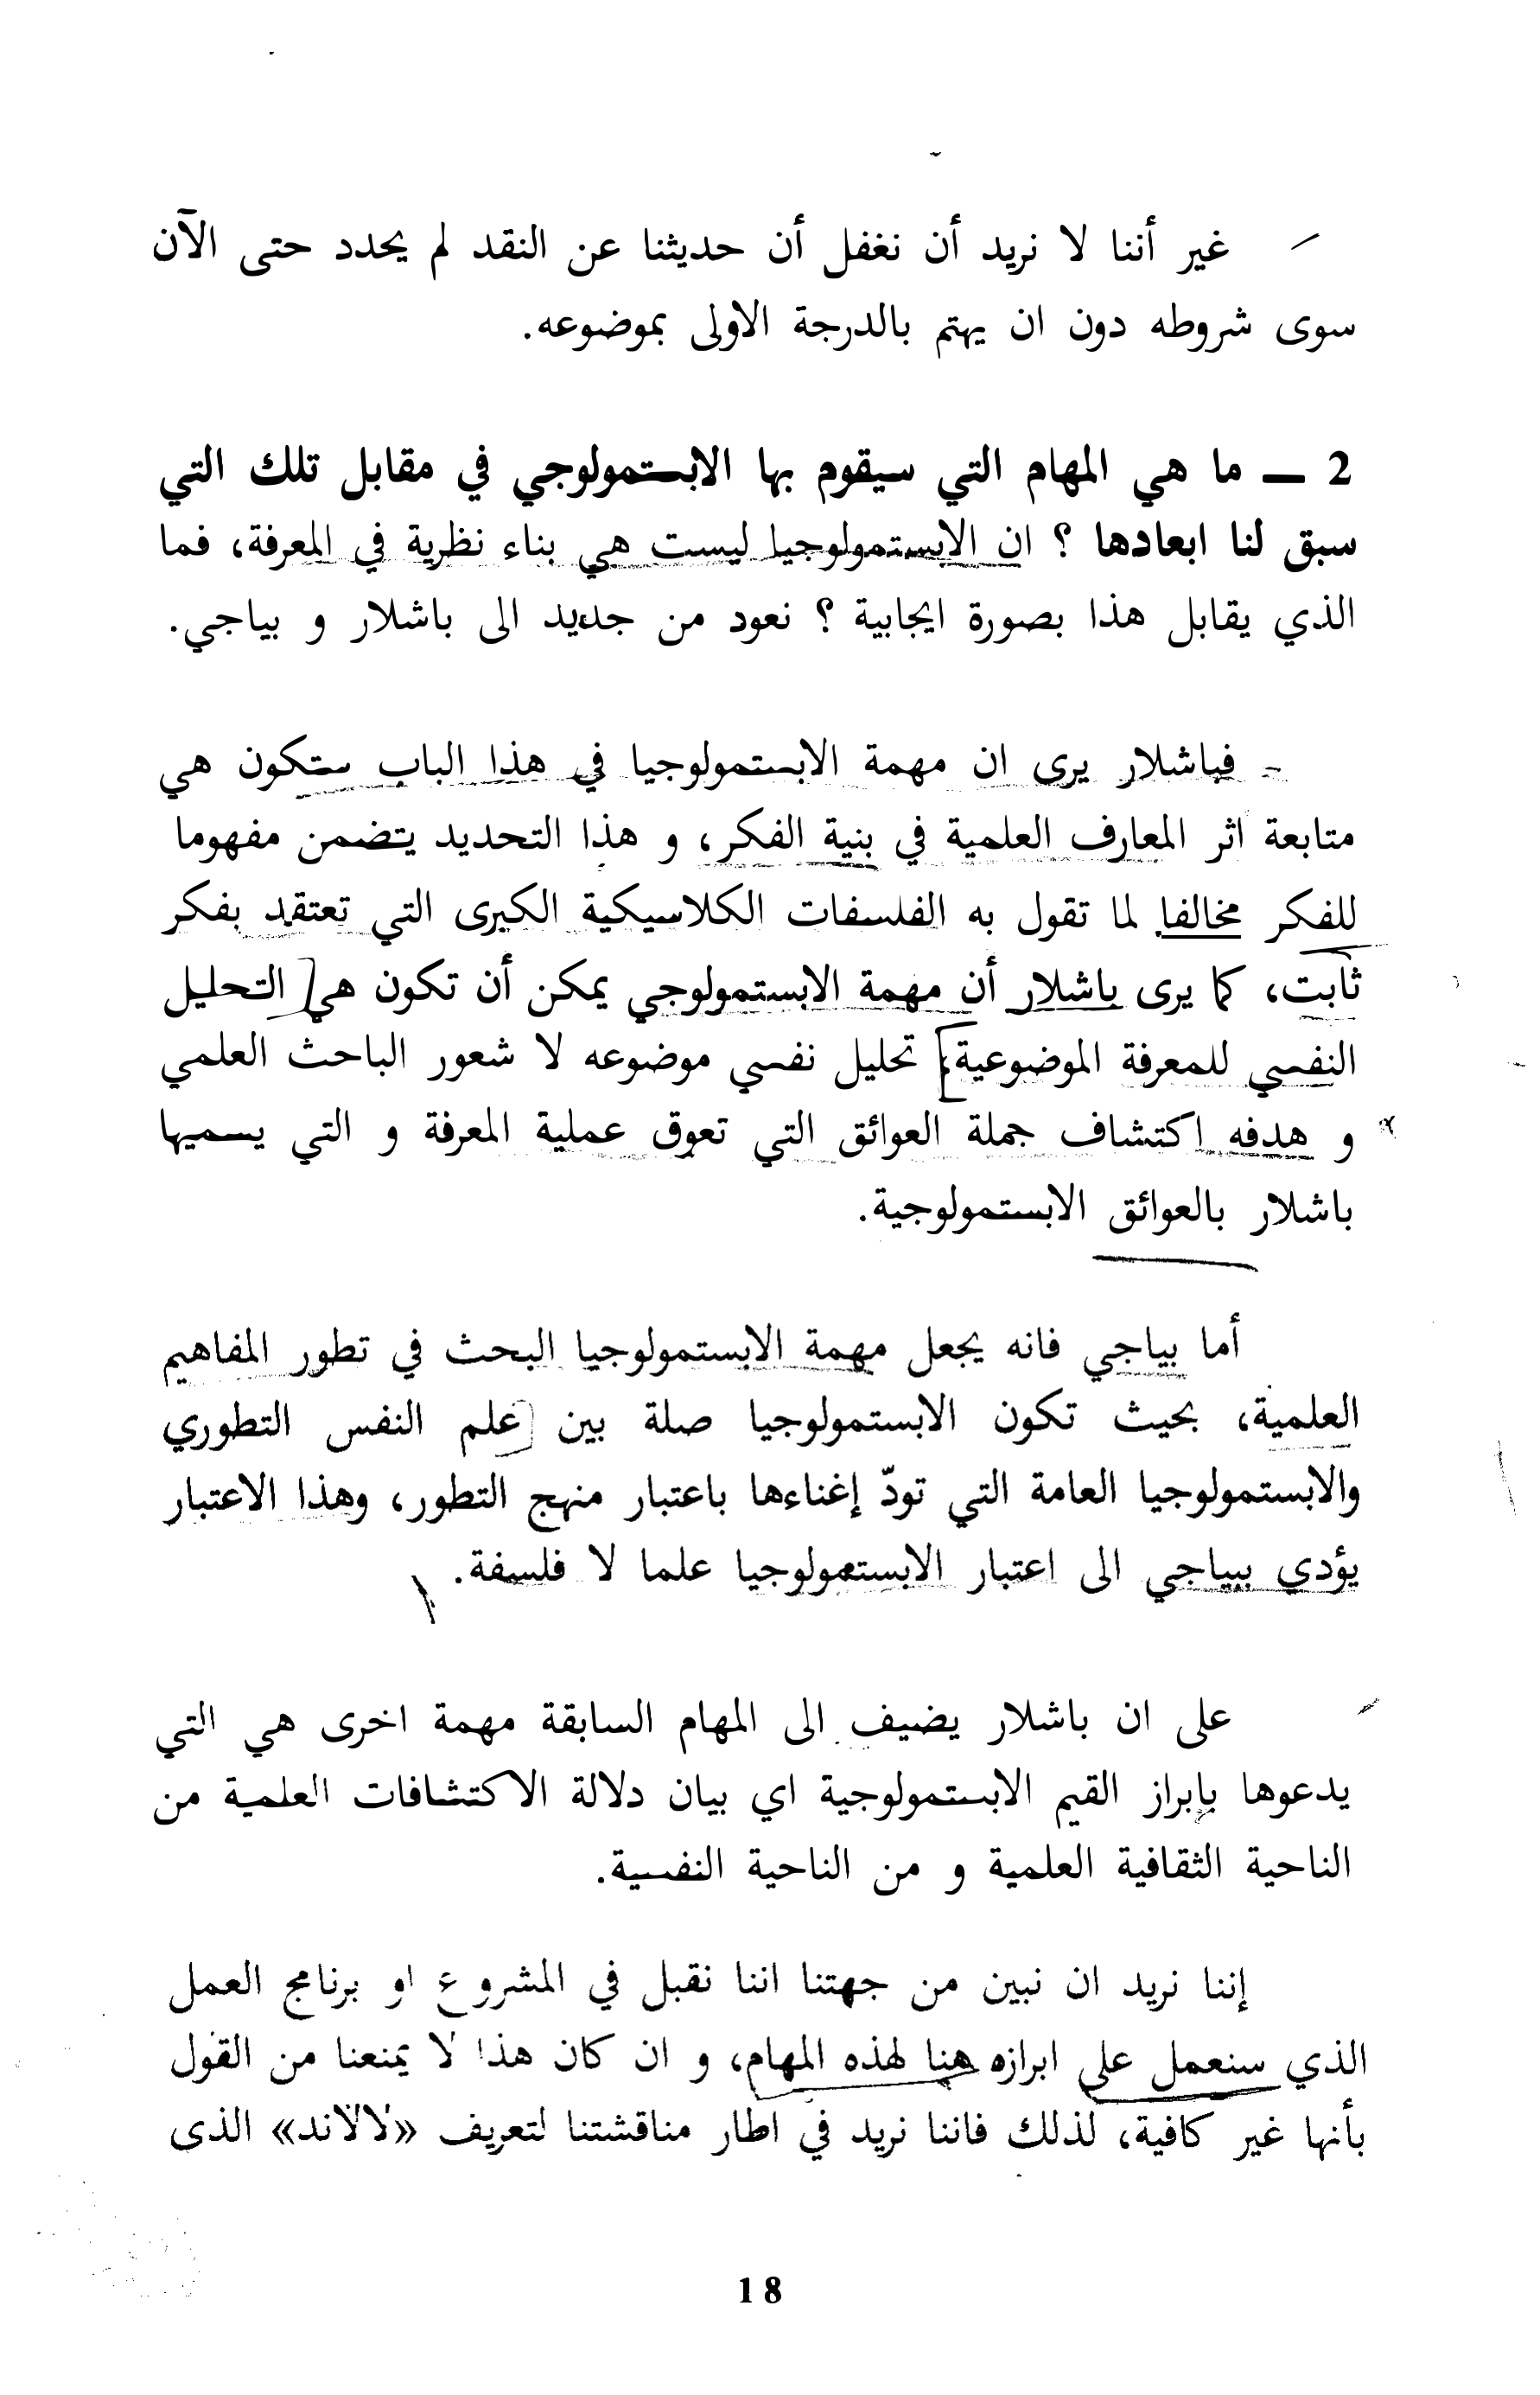 غير أننا لا نريد أن نغفل أن حديثنا عن النقد لم يحدد حتى الآن
سوى شروطه دون ان يهتم بالدرجة الاولى بموضوعه.
2 — ما هي المهام التي سيقوم بها الابستمولوجي في مقابل تلك التي
سبق لنا ابعادها ؟ ان الابستمولوجيا ليست هي بناء نظرية في المعرفة، فما
الذي يقابل هذا بصورة ايجابية ؟ نعود من جديد الى باشلار و بياجي.
- فباشلار يرى ان مهمة الابستمولوجيا في هذا الباب ستكون هي
متابعة اثر المعارف العلمية في بنية الفكر، و هذا التحديد يتضمن مفهوما
للفكر مخالفا لما تقول به الفلسفات الكلاسيكية الكبرى التي تعتقد بفكر
ثابت، كما يرى باشلار أن مهمة الابستمولوجي يمكن أن تكون هي التحليل
النفسي للمعرفة الموضوعية، تحليل نفسي موضوعه لا شعور الباحث العلمي
و هدفه اكتشاف جملة العوائق التي تعوق عملية المعرفة و التي يسميها
باشلار بالعوائق الابستمولوجية.
أما بياجي فانه يجعل مهمة الابستمولوجيا البحث في تطور المفاهيم
العلمية، بحيث تكون الابستمولوجيا صلة بين علم النفس التطوري
والابستمولوجيا العامة التي تودّ إغناءها باعتبار منهج التطور، وهذا الاعتبار
يؤدي ببياجي الى اعتبار الابستمولوجيا علما لا فلسفة.
على ان باشلار يضيف الى المهام السابقة مهمة اخرى هي التي
يدعوها بإبراز القيم الابستمولوجية اي بيان دلالة الاكتشافات العلمية من
الناحية الثقافية العلمية و من الناحية النفسية.
إننا نريد ان نبين من جهتنا اننا نقبل في المشروع او برنامج العمل
الذي سنعمل على ابرازه هنا لهذه المهام، و ان كان هذا لا يمنعنا من القول
بأنها غير كافية، لذلك فاننا نريد في اطار مناقشتنا لتعريف «لالاند» الذى
18